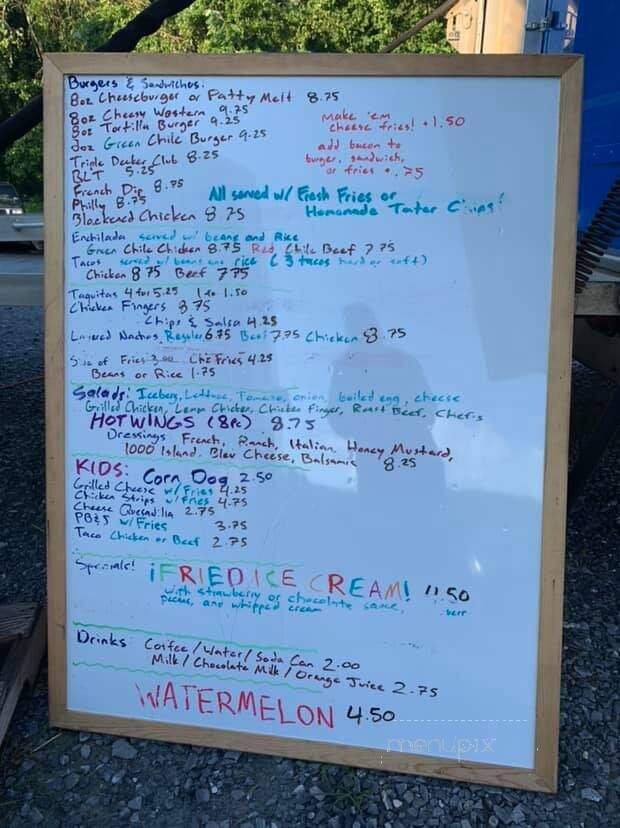 Burgers & Sandwiches:
8oz Cheeseburger or Patty Melt 8.75
8oz Cheesy Western 9.75
8oz Tortilla Burger 9.25
8oz Green Chile Burger 9.25
Triple Decker Club 8.25
BLT 5.25
French Dip 8.75
Philly 8.75
Blackened Chicken 8.75
make 'em
cheese fries! +1.50
add bacon to
burger, sandwich,
or fries +.75
All served w/ Fresh Fries or
Homemade Tater Chips!
Enchilada served w/ beans and Rice
Green Chile Chicken 8.75 Red Chile Beef 7.75
Tacos served w/ beans and rice (3 tacos hard or soft)
Chicken 8.75 Beef 7.75
Taquitas 4 for 5.25 1 for 1.50
Chicken Fingers 8.75
Chips & Salsa 4.25
Layered Nachos Regular 6.75 Beef 7.75 Chicken 8.75
Side of Fries 3.00 Chz Fries 4.25
Beans or Rice 1.75
Salads: Iceberg, Lettuce, Tomato, onion, boiled egg, cheese
Grilled Chicken, Lemon Chicken, Chicken Finger, Roast Beef, Chefs
HOTWINGS (8pc) 8.75
Dressings French, Ranch, Italian, Honey Mustard,
1000 Island, Bleu Cheese, Balsamic 8.25
KIDS: Corn Dog 2.50
Grilled Cheese w/Fries 4.25
Chicken Strips w/Fries 4.75
Cheese Quesadilla 2.75
PB&J w/Fries 3.75
Taco Chicken or Beef 2.75
Specials! ¡FRIED ICE CREAM! 4.50
with strawberry or chocolate sauce,
pecans, and whipped cream
Drinks Coffee/Water/Soda Can 2.00
Milk/Chocolate Milk/Orange Juice 2.75
WATERMELON 4.50
menupix